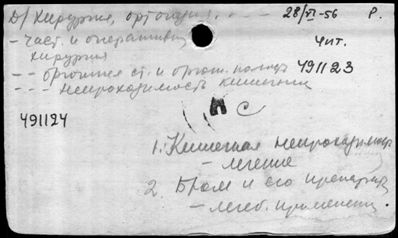 D/ Хирургия, ортопедия. 28/VI-56 Р.
- Част. и оперативн. Чит.
хирургия
-- органическая ст. и орган. 491123
--- Непроходимость кишечника
Н С
491124
1. Кишечная непроходимость
- лечение
2. Бром и его препараты
- лечеб. применение